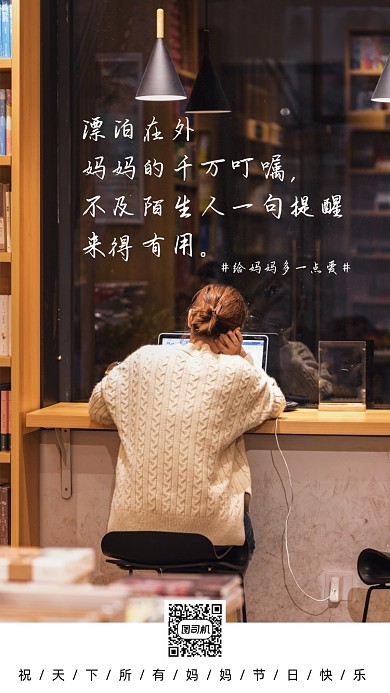 漂泊在外
妈妈的千万叮嘱，
不及陌生人一句提醒
来得有用。
#给妈妈多一点爱#
图司机
祝/天/下/所/有/妈/妈/节/日/快/乐